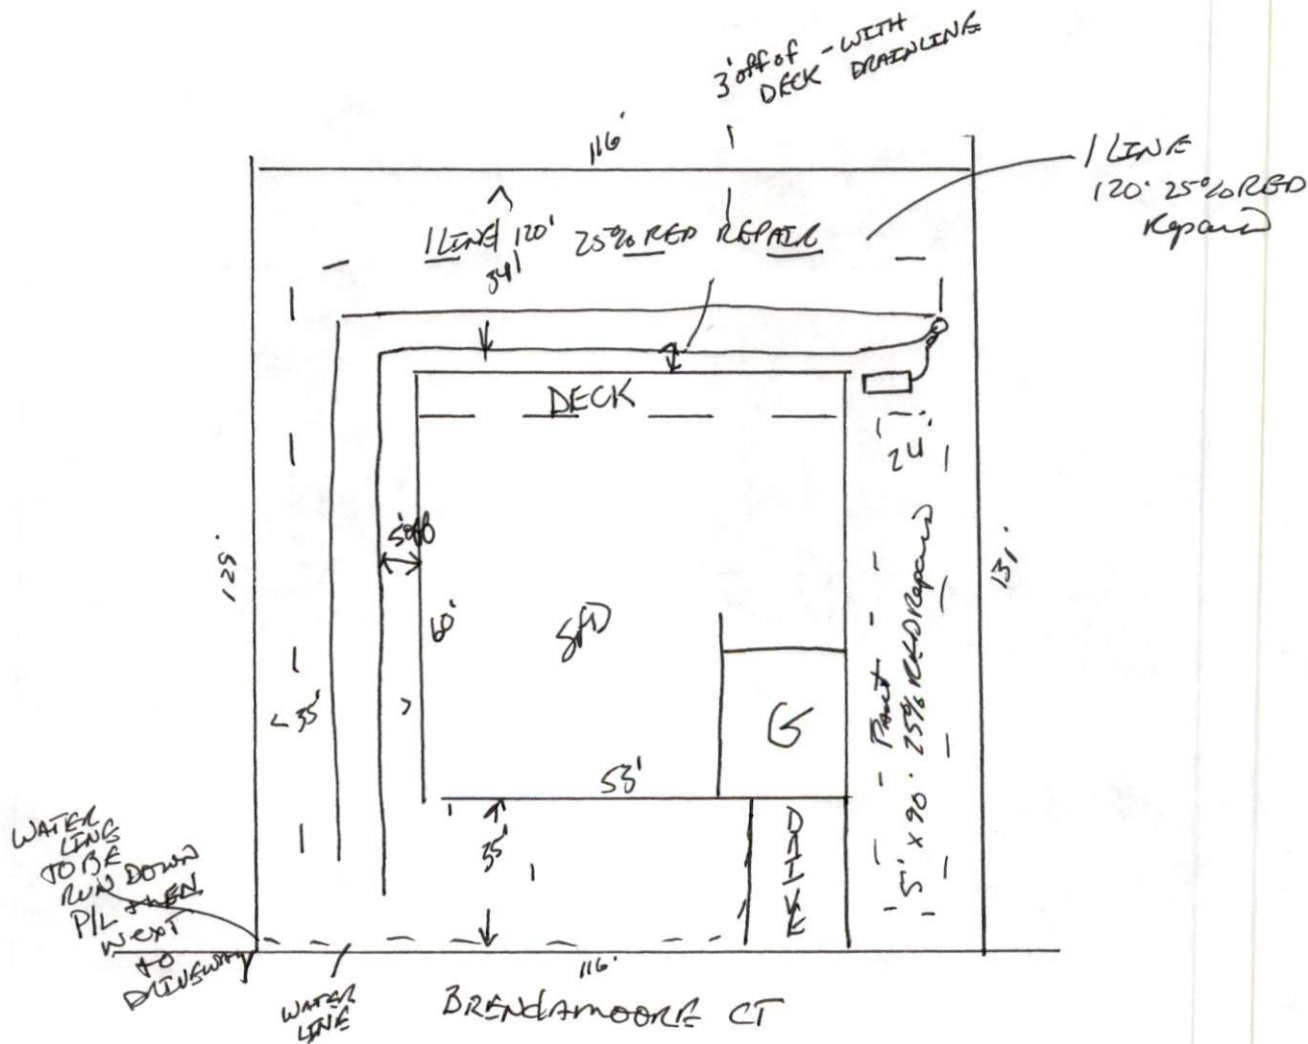 3' off of - WITH
DECK DRAINLINE
116'
1 LINE
120' 25% RED
Repair
1 LINE 120' 25% RED REPAIR
34'
DECK
24'
5' off
125'
60'
SFD
131'
Part
5' x 90' 25% RED Repair
< 35' >
G
55'
35'
DRIVE
WATER
LINE
TO BE
RUN DOWN
P/L then
NEXT
to
DRIVEWAY
WATER
LINE
116'
BRENDAMOORE CT